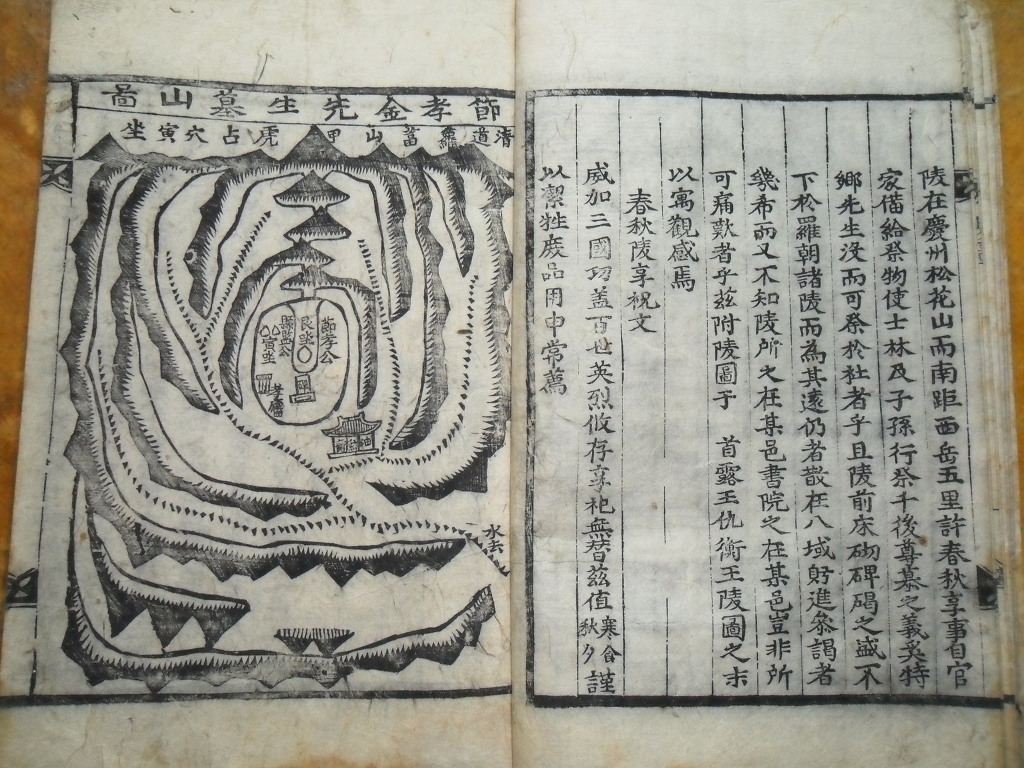 陵在慶州松花山而南距西岳五里許春秋享事自官
家備給祭物使士林及子孫行祭千後尊慕之義奚特
鄉先生沒而可祭於社者乎且陵前床砌碑碣之盛不
下於羅朝諸陵而為其遠仍者散在八域躬進叅謁者
幾希而又不知陵所之在某邑書院之在某邑豈非所
可痛歎者乎茲附陵圖于 首露王仇衡王陵圖之末
以寓觀感焉
春秋陵享祝文
威加三國功盖百世英烈攸存享祀無替茲值寒食秋夕謹
以潔牲庶品用申常薦
節孝金先生墓山圖
清道 山甲 虎占穴寅坐
節孝公
艮坐
縣監公
寅坐
孝廬
水法